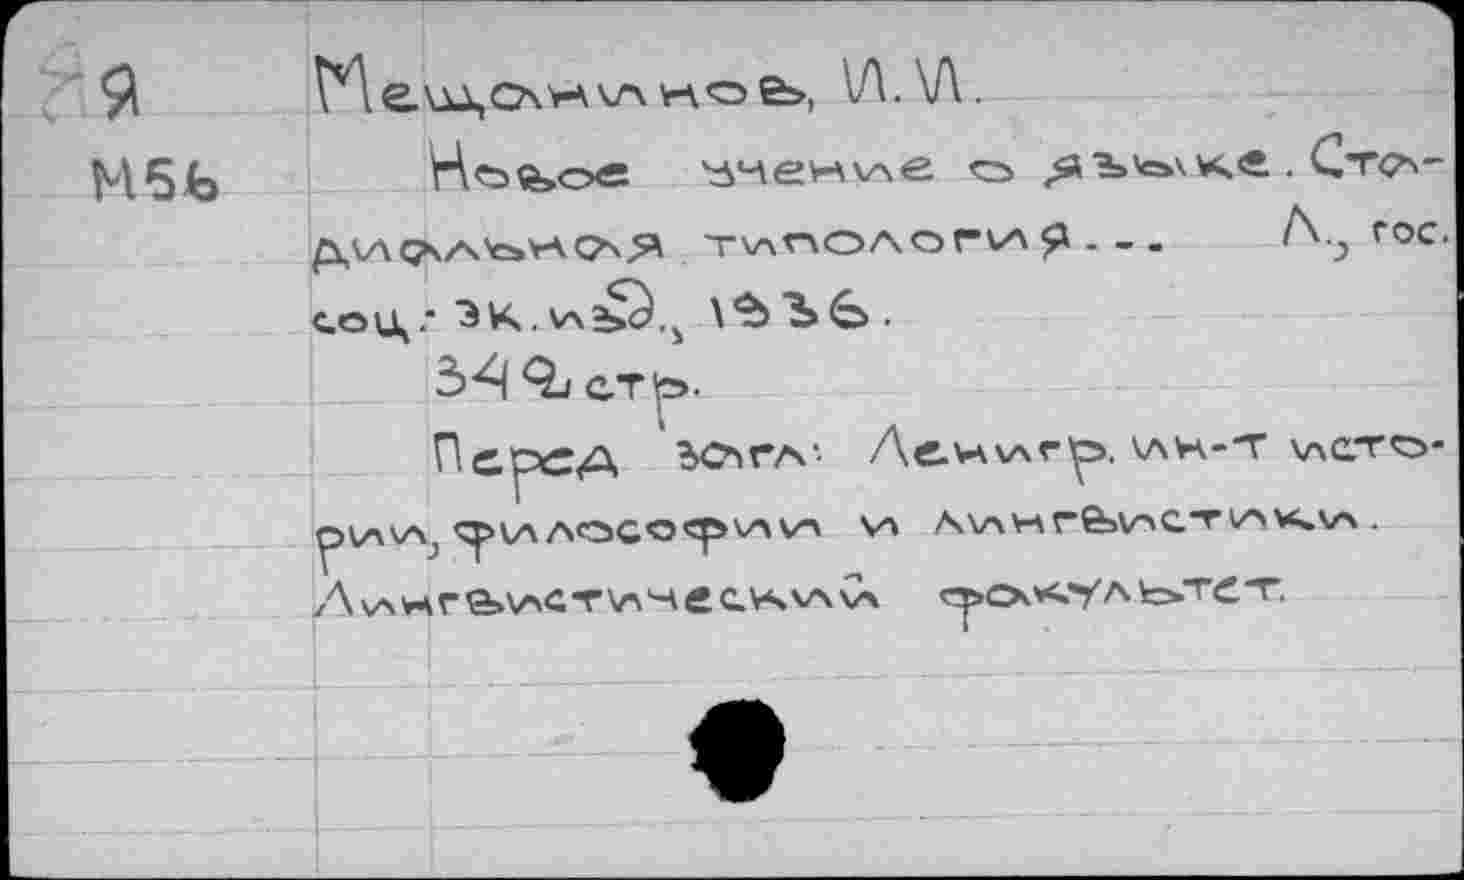 Я Мещанинов, И. И.
М56 Новое учение о языке. Ста-
диальная типология... Л., гос.
соц.-эк. изд., 1936.
349 стр.
Перед загл: Ленингр. ин-т исто-
рии, философии и лингвистики.
Лингвистический факультет.